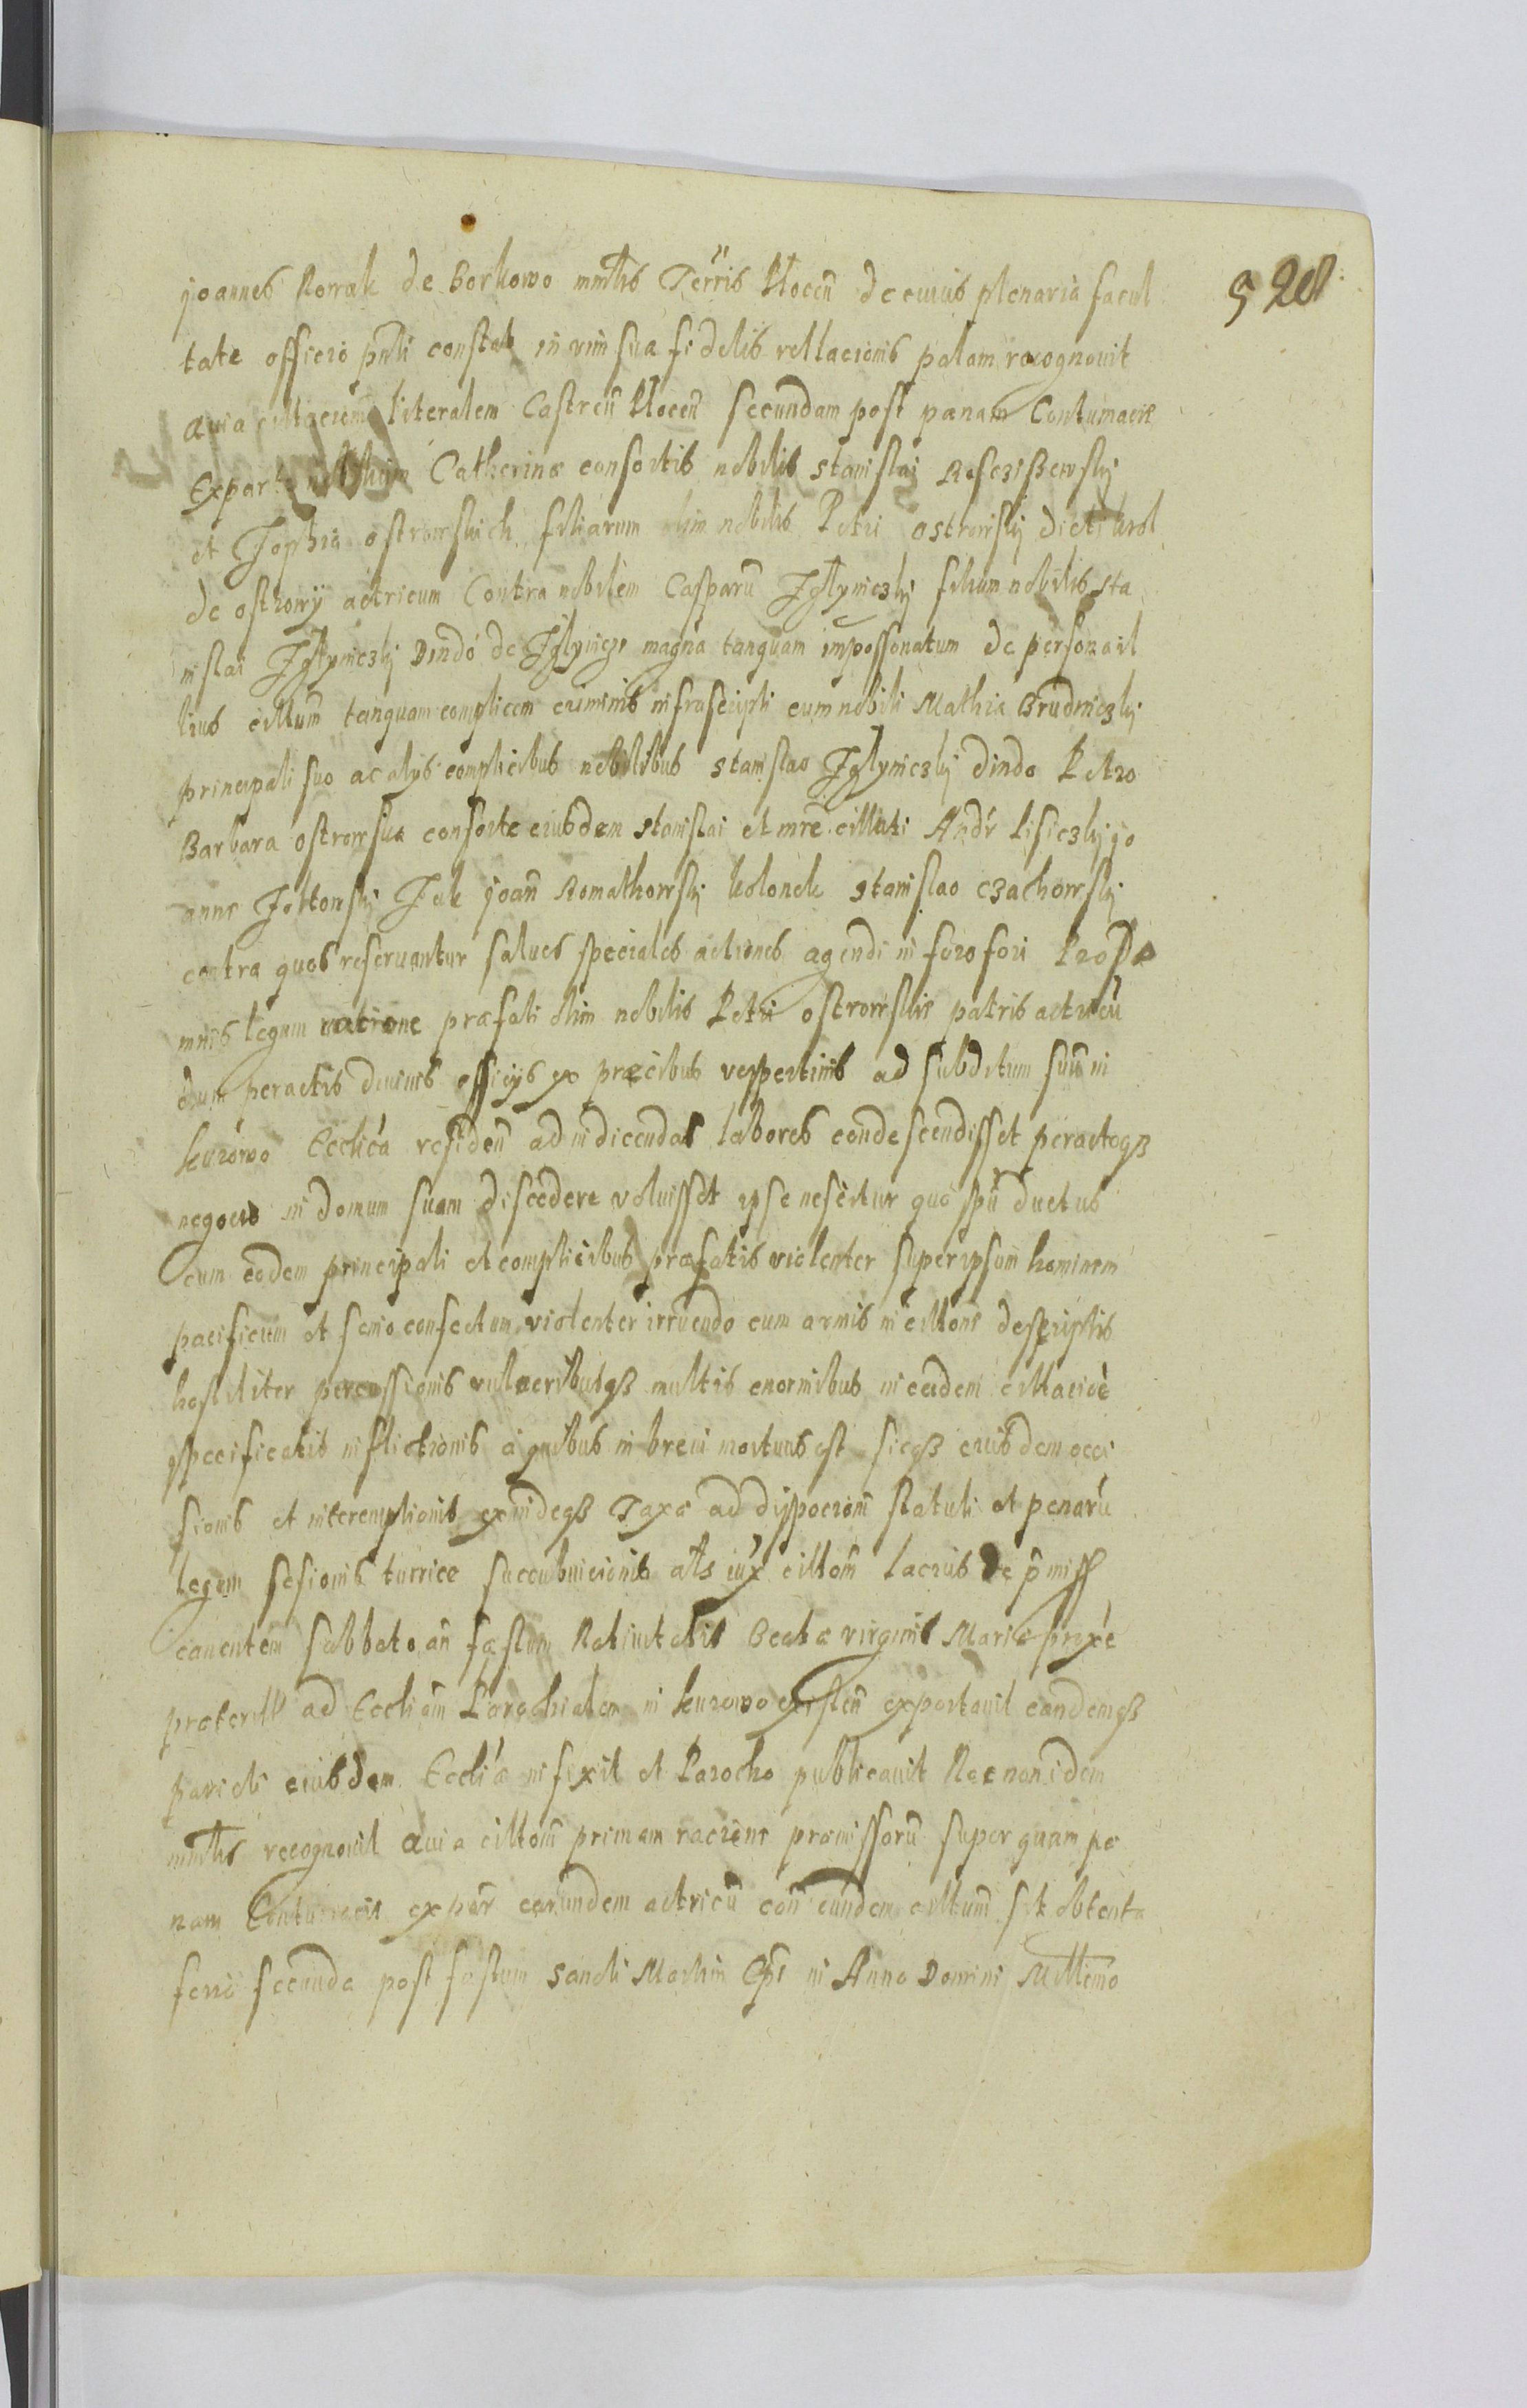 528
Joannes Nowak de Borkowo mnrlis Terris Plocen̄ de cuius plenaria facul
tate officio pnti constat in vim sua fidelis rellacionis palam recognovit
quia cittacionē literalem Castren̄ Plocen̄ secundam post pœnam Contumacie
Ex parte nobilium Catherinæ consortis nobilis Stanislai
et Zophia ostrowskich filiarum olim nobilis Petri ostrowskj dicti krol
de ostrowÿ actricum Contra nobilem Casparū Jglyniczkj filium nobilis Sta
nislai Jglyniczkj Dindo de magna tanquam impossonatum de persona il
lius cittum tanquam complicem criminis infrascripti cum nobili Mathia Brudniczkj
principali suo ac alys complicibus nobilibus Stanislao Jglyniczkj dindo Petro
Barbara ostrowska consorte eiusdem Stanislai et mre cittati Andr Lisiczkj jo
anne Joan Romathowskj kolonek Stanislao Czachowskj
contra quos reservantur salues speciales actiones agendi in foro fori Pro
legum racione præfati olim nobilis Petri ostrowskie patris actricū
dum peractis diuinis officijs ex præcibus vespertinis ad subditum suū in
kurowo Ecclica residen̄ ad indicendas labores condescendisset peractoqß
negocio in domum suam discedere voluisset ipse nescitur quo spū ductus
cum eodem principali et complicibus præfatis violenter super ipsum hominem
pacificum et senio confectum violenter irruendo cum armis in cittone descriptis
hostiliter percussionis vulneribusqß multis enormibus in eadem cittacioē
specificatis inflictionis a quibus in brevi mortuus est sicqß eiusdem occi
sionis et interemptionis exindeqß Taxe ad disposcionē statuti et penarū
legum sesionis turrice succubuicionis als iux cittom̄ lacius de p̄miss
canentem sabbato an̄ fæstum Natiuitatis Beatæ virginis Mariæ proxe
preterit ad Eccliam Parochialem in kurowo existen̄ exportauit eandemqß
parieti eiusdem Ecclia infixit et Parocho publicauit Necnon idem
mnrlis recognouit quia cittom̄ primam racione præmissorū super quam pe
nam Contumacie ex par earundem actricū con̄ eundem cittum sit obtenta
feria secunda post fæstum Sancti Martini Epi in Anno Domini Millimo